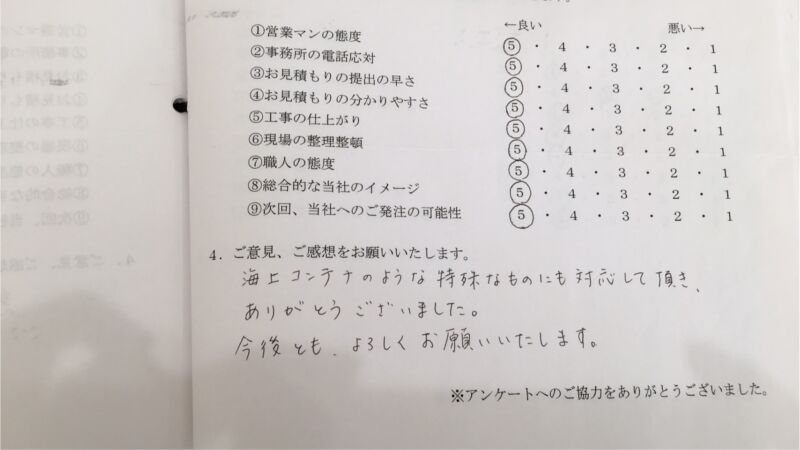 ←良い 悪い→
①営業マンの態度 5 ・ 4 ・ 3 ・ 2 ・ 1
②事務所の電話応対 5 ・ 4 ・ 3 ・ 2 ・ 1
③お見積もりの提出の早さ 5 ・ 4 ・ 3 ・ 2 ・ 1
④お見積もりの分かりやすさ 5 ・ 4 ・ 3 ・ 2 ・ 1
⑤工事の仕上がり 5 ・ 4 ・ 3 ・ 2 ・ 1
⑥現場の整理整頓 5 ・ 4 ・ 3 ・ 2 ・ 1
⑦職人の態度 5 ・ 4 ・ 3 ・ 2 ・ 1
⑧総合的な当社のイメージ 5 ・ 4 ・ 3 ・ 2 ・ 1
⑨次回、当社へのご発注の可能性 5 ・ 4 ・ 3 ・ 2 ・ 1
4．ご意見、ご感想をお願いいたします。
海上コンテナのような特殊なものにも対応して頂き、
ありがとうございました。
今後とも、よろしくお願いいたします。
※アンケートへのご協力をありがとうございました。